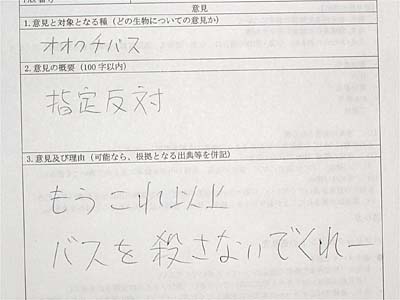 意見
1.意見と対象となる種（どの生物についての意見か）
オオクチバス
2.意見の概要（100字以内）
指定反対
3.意見及び理由（可能なら、根拠となる出典等を併記）
もうこれ以上
バスを殺さないでくれー